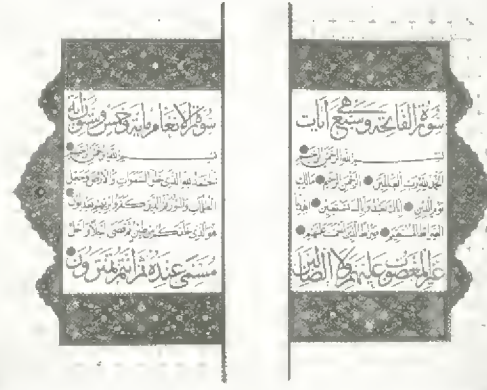 سورة الفاتحة وهي سبع آيات
بسم الله الرحمن الرحيم
الحمد لله رب العالمين الرحمن الرحيم مالك
يوم الدين اياك نعبد واياك نستعين اهدنا
الصراط المستقيم صراط الذين انعمت عليهم
غير المغضوب عليهم ولا الضالين
سورة الانعام ماية وخمس وستون آية
بسم الله الرحمن الرحيم
الحمد لله الذي خلق السموات والارض وجعل
الظلمات والنور ثم الذين كفروا بربهم يعدلون
هو الذي خلقكم من طين ثم قضى اجلا واجل
مسمى عنده ثم انتم تمترون